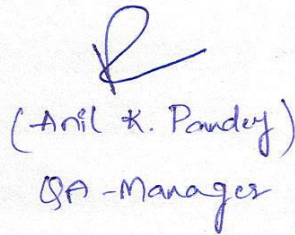 (Anil K. Pandey)
QA-Manager